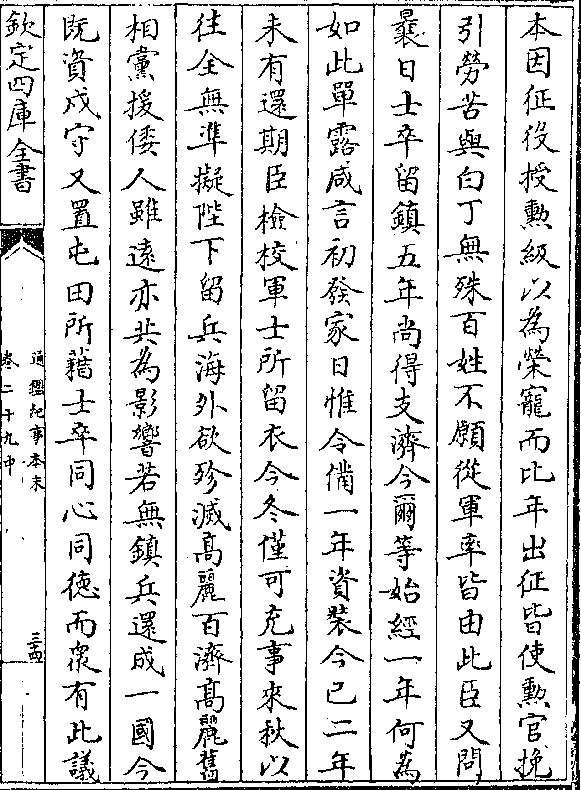 本因征役授勲級以為榮寵而比年出征皆使勲官挽
引勞苦與白丁無殊百姓不願從軍率皆由此臣又問
曩日士卒留鎮五年尚得支濟今爾等始經一年何為
如此單露咸言初發家日惟令備一年資裝今已二年
未有還期臣檢校軍士所留衣今冬僅可充事來秋以
往全無準擬陛下留兵海外欲殄滅高麗百濟高麗舊
相黨援倭人雖遠亦共為影響若無鎮兵還成一國今
既資戍守又置屯田所藉士卒同心同徳而衆有此議
欽定四庫全書
通鑑紀事本末
卷二十九中
三十四